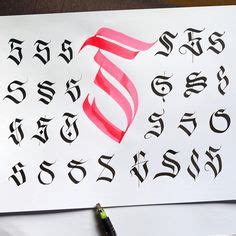 S S S S S S S
S S S S S S
S S S S S S
S S S S S S S S